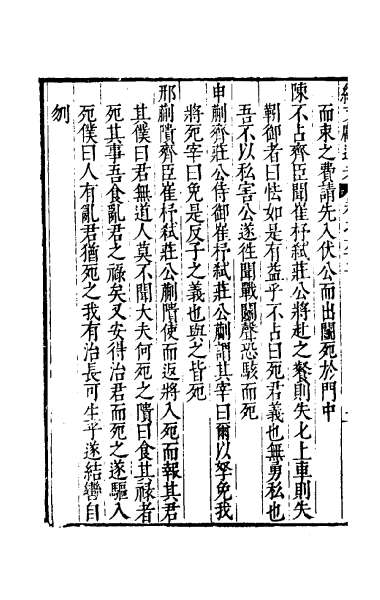 而束之費請先入伏公而出鬬死於門中
陳不占齊臣聞崔杼弑莊公將赴之餐則失匕上車則失
靷御者曰怯如是有益乎不占曰死君義也無勇私也
吾不以私害公遂徃聞戰鬬聲恐駭而死
申蒯齊莊公侍御崔杼弑莊公蒯謂其宰曰爾以孥免我
將死宰曰免是反子之義也與之皆死
邢蒯瞶齊臣崔杼弑莊公蒯瞶使而返將入死而報其君
其僕曰君無道人莫不聞大夫何死之瞶曰食其祿者
死其事吾食亂君之祿矣又安得治君而死之遂驅入
死僕曰人有亂君猶死之我有治長可生乎遂結轡自
刎